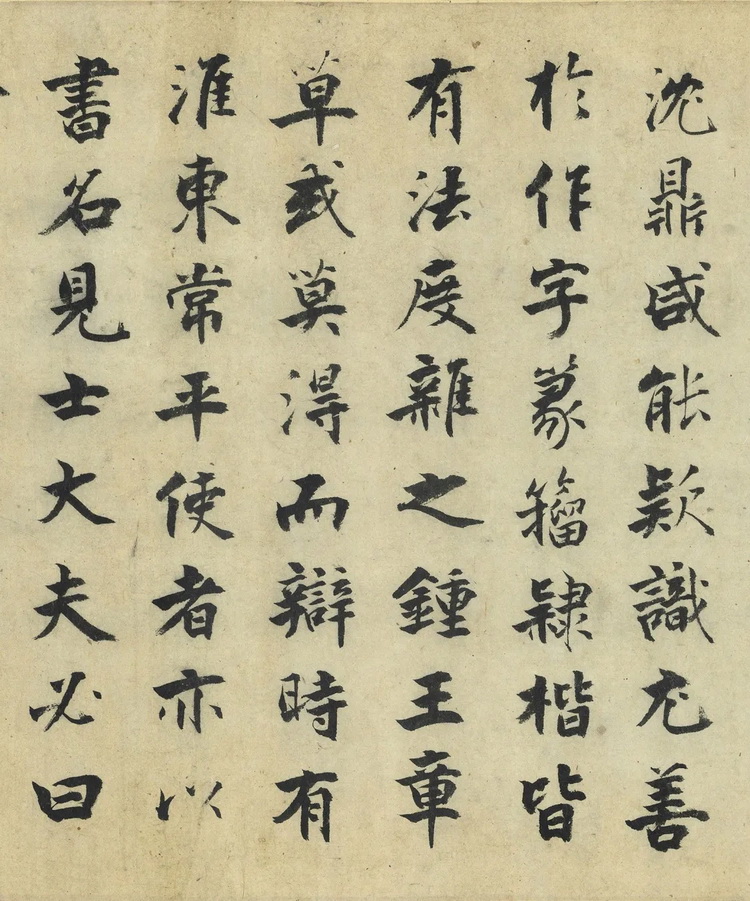 沈鼎咸能款識尤善
於作字篆籀隸楷皆
有法度雜之鍾王章
草或莫得而辯時有
淮東常平使者亦以
書名見士大夫必曰